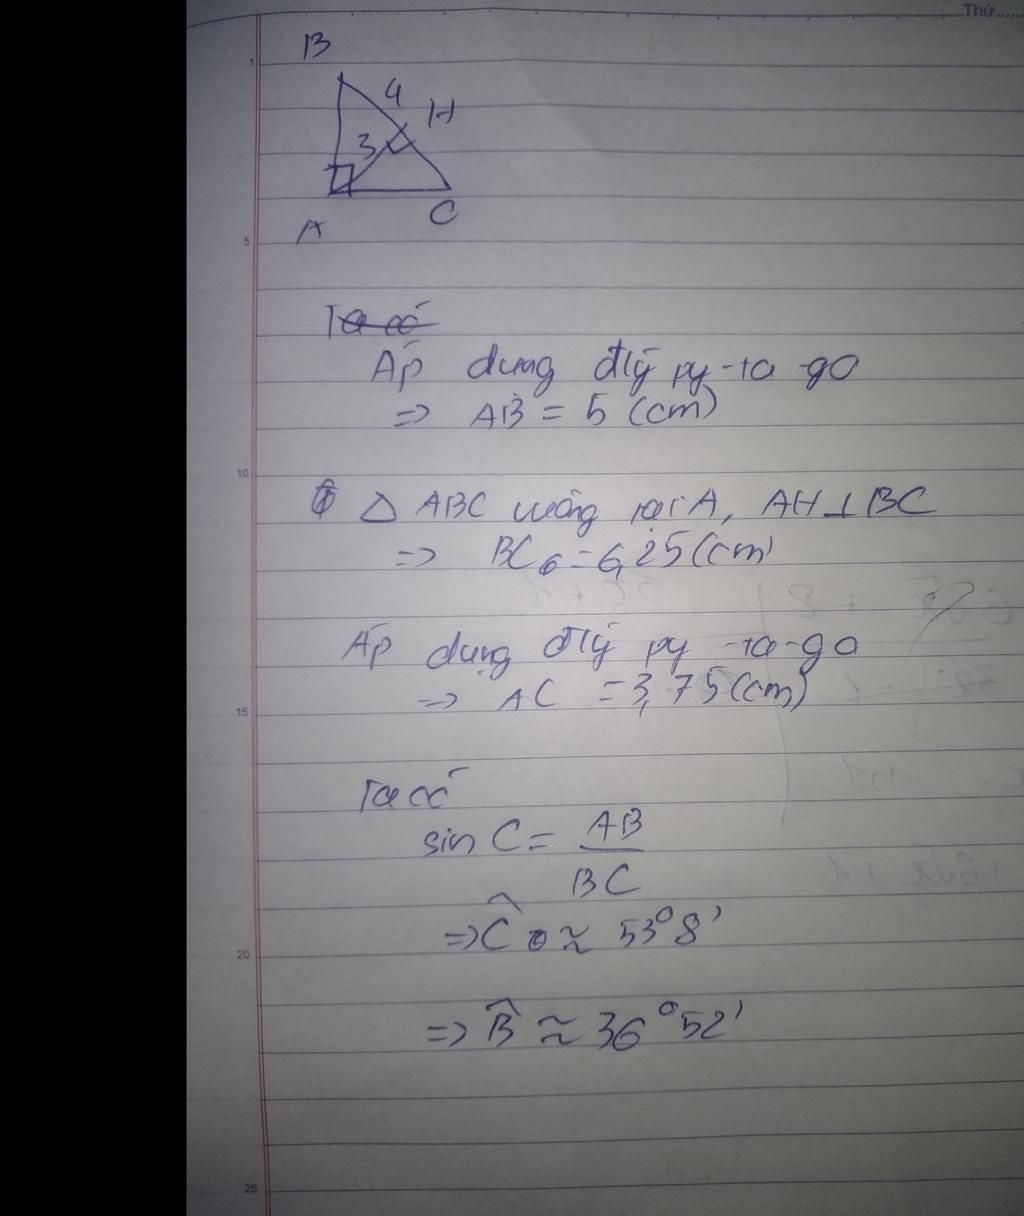 Thứ.....
B
4
H
3
A
C
Ta có
Áp dụng đlý py-ta-go
=> AB = 5 (cm)
Δ ABC vuông tại A, AH ⊥ BC
=> BC = 6,25 (cm)
Áp dụng đlý py-ta-go
=> AC = 3,75 (cm)
Ta có
sin C = AB
BC
=> Ĉ ≈ 53°8'
=> B̂ ≈ 36°52'
1
5
10
15
20
25